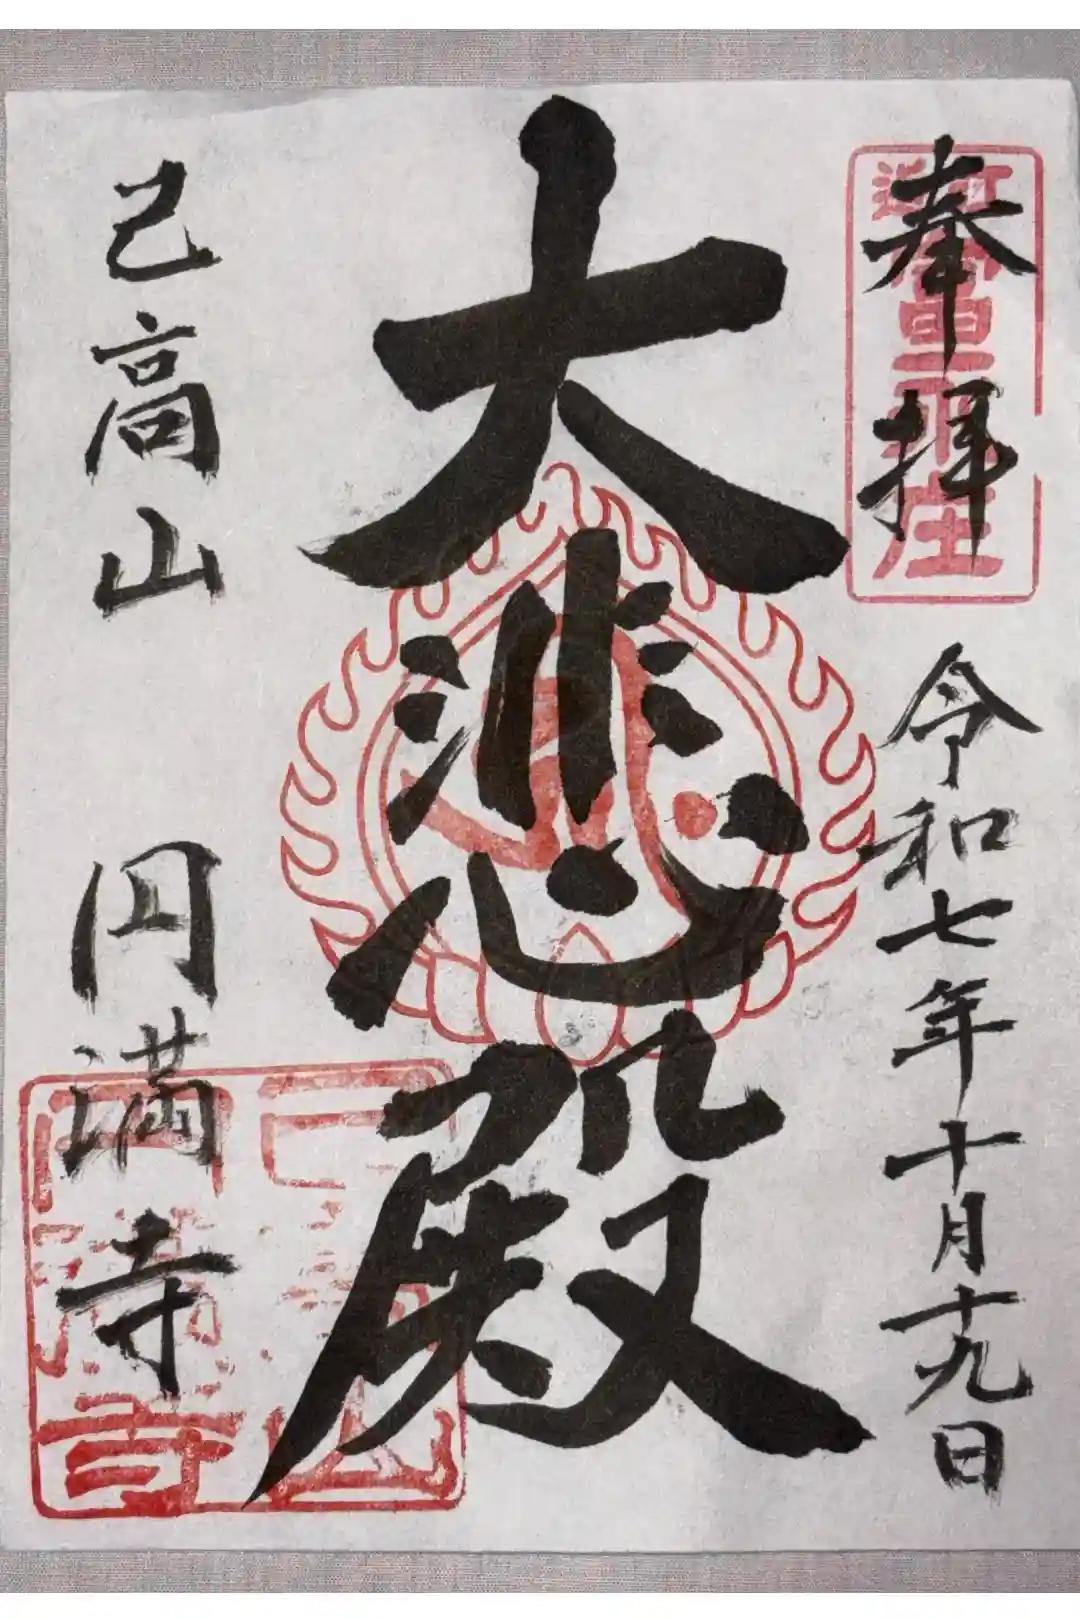 奉拝
令和七年十月十九日
大悲殿
己高山
円満寺